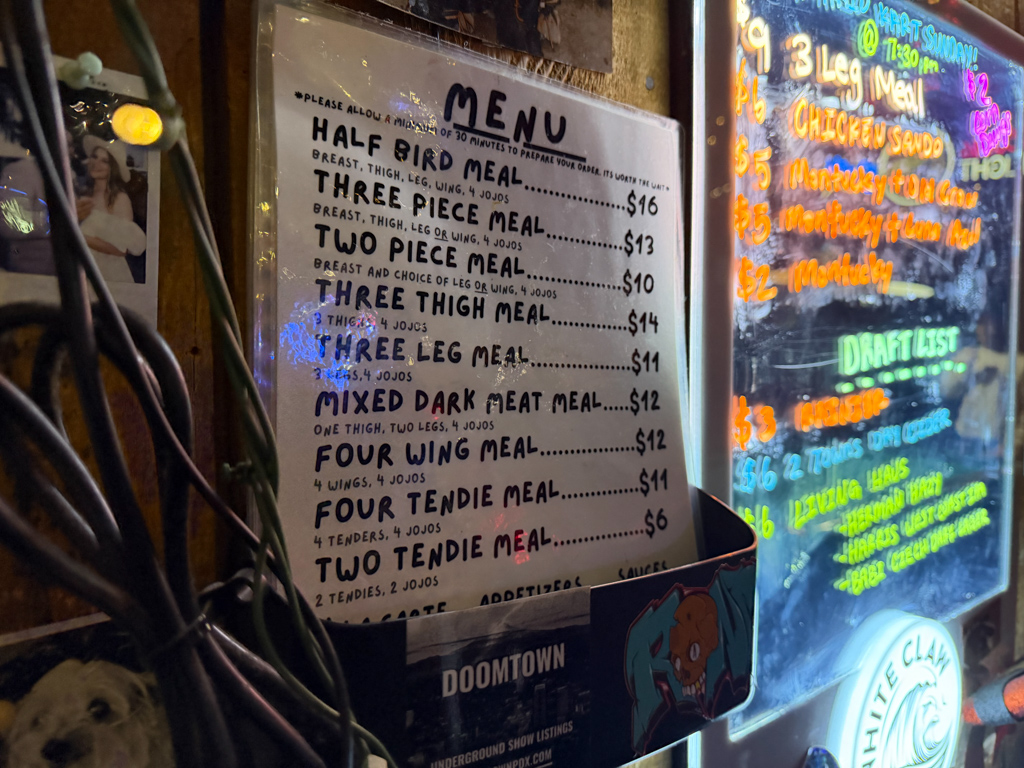 MENU
*PLEASE ALLOW A MINIMUM OF 30 MINUTES TO PREPARE YOUR ORDER. ITS WORTH THE WAIT*
HALF BIRD MEAL...............$16
BREAST, THIGH, LEG, WING, 4 JOJOS
THREE PIECE MEAL............$13
BREAST, THIGH, LEG OR WING, 4 JOJOS
TWO PIECE MEAL..............$10
BREAST AND CHOICE OF LEG OR WING, 4 JOJOS
THREE THIGH MEAL............$14
3 THIGHS, 4 JOJOS
THREE LEG MEAL...............$11
3 LEGS, 4 JOJOS
MIXED DARK MEAT MEAL.....$12
ONE THIGH, TWO LEGS, 4 JOJOS
FOUR WING MEAL..............$12
4 WINGS, 4 JOJOS
FOUR TENDIE MEAL............$11
4 TENDERS, 4 JOJOS
TWO TENDIE MEAL.............$6
2 TENDIES, 2 JOJOS
APPETIZERS SAUCES
DOOMTOWN
UNDERGROUND SHOW LISTINGS
@ 7:30pm
$9 3 Leg Meal
$6 CHICKEN SANDO
$5 Montucky
$5 Montucky
$2 Montucky
$2
DRAFT LIST
$3
$6 2 TOWNS CIDER
$6 LIVING HAUS
WHITE CLAW